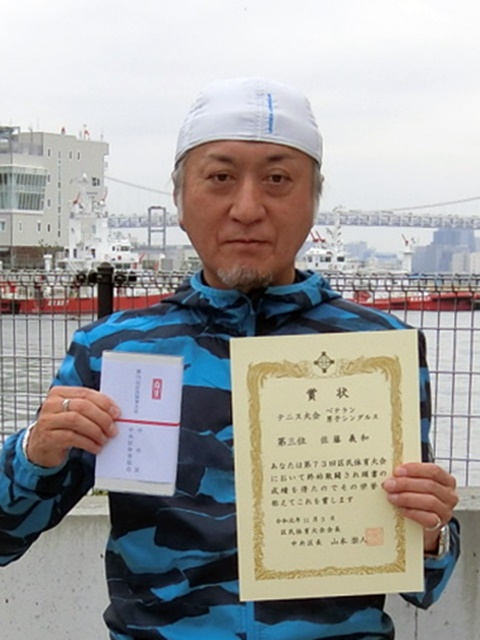 賞状
テニス大会 ベテラン
男子シングルス
第三位 佐藤義和
あなたは第73回区民体育大会
において終始敢闘され頭書の
成績を得たのでその栄誉を
称えてこれを賞します
令和元年11月3日
区民体育大会会長
中央区長 山本泰人